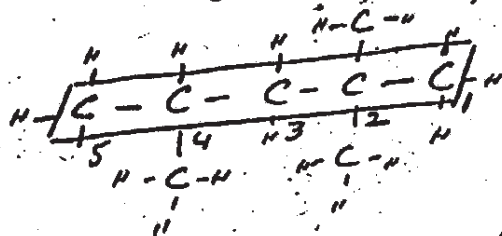 H
H-C-H
H H H H
H-C-C-C-C-C-H
5 4 H 3 2 H 1
H-C-H H-C-H
H H